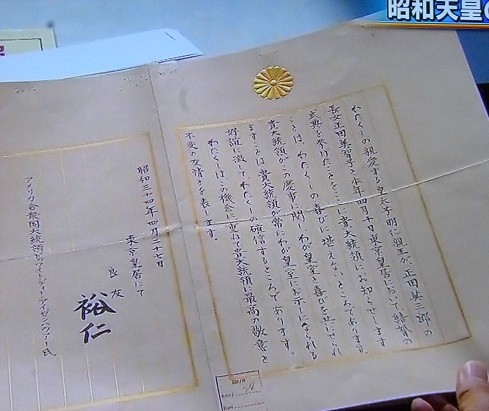 昭和天皇の
わたくしの親愛する皇太子明仁親王が、正田英三郎の
長女正田美智子と本年四月十日東京皇居において結婚の
式典を挙げたことをここに貴大統領にお知らせします
ことは、わたくしの喜びに堪えないところであります。
貴大統領がこの慶事に関しわが皇室と喜びを共にせられ
ますことは、貴大統領が常にわが皇室にお示しになられる
好誼に徴してわたくしの確信するところであります。
わたくしはこの機会に重ねて貴大統領に最高の敬意と
不変の友情とを表します。
昭和三十四年四月二十七日
東京皇居にて
良友
裕仁
アメリカ合衆国大統領ドワイト・ディー・アイゼンハワー氏